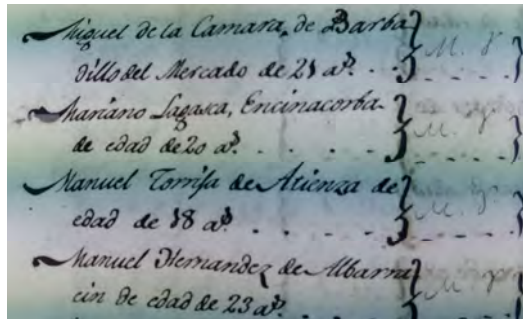 Miguel de la Camara, de Barba
dillo del Mercado de 21 as.
Mariano Lagasca, Encinacorba
de edad de 20 as.
Manuel Torrisa de Atienza de
edad de 18 as.
Manuel Hernandez de Albarra
cin de edad de 23 as.